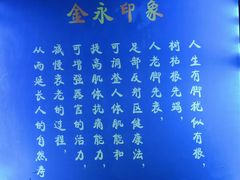 金永印象
人生有脚犹似有根，
树枯根先竭，
人老脚先衰，
足部反射区健康法，
可调整人体肌能和
提高肌体抗痛能力，
可增强器官的活力，
减慢衰老的过程，
从而延长人的自然寿